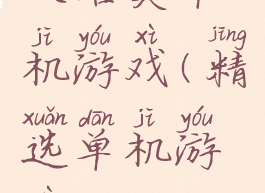 jī yóu xì jīng
机游戏(精
xuǎn dān jī yóu
选单机游